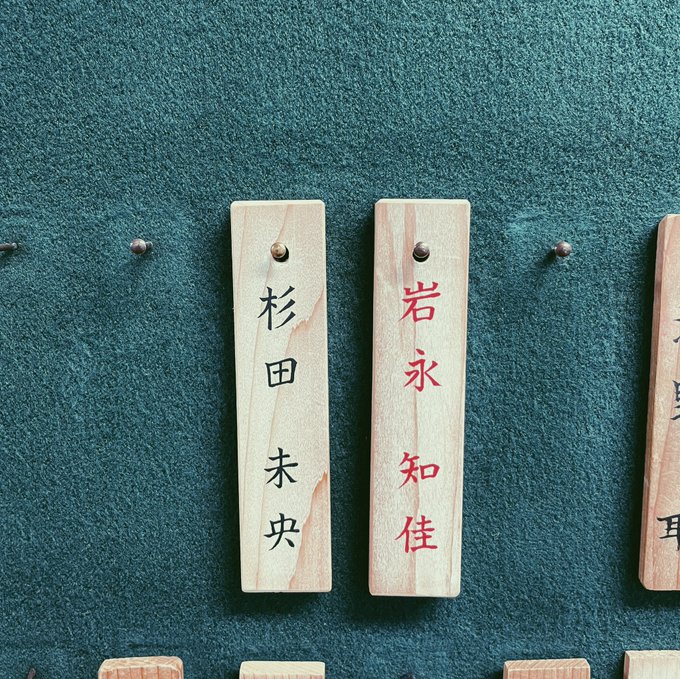 杉田 未央
岩永 知佳